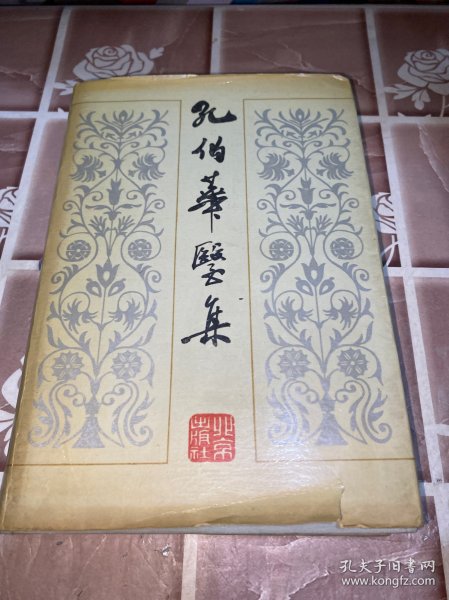 孔伯華醫集
北京
出版社
孔夫子旧书网
www.kongfz.com